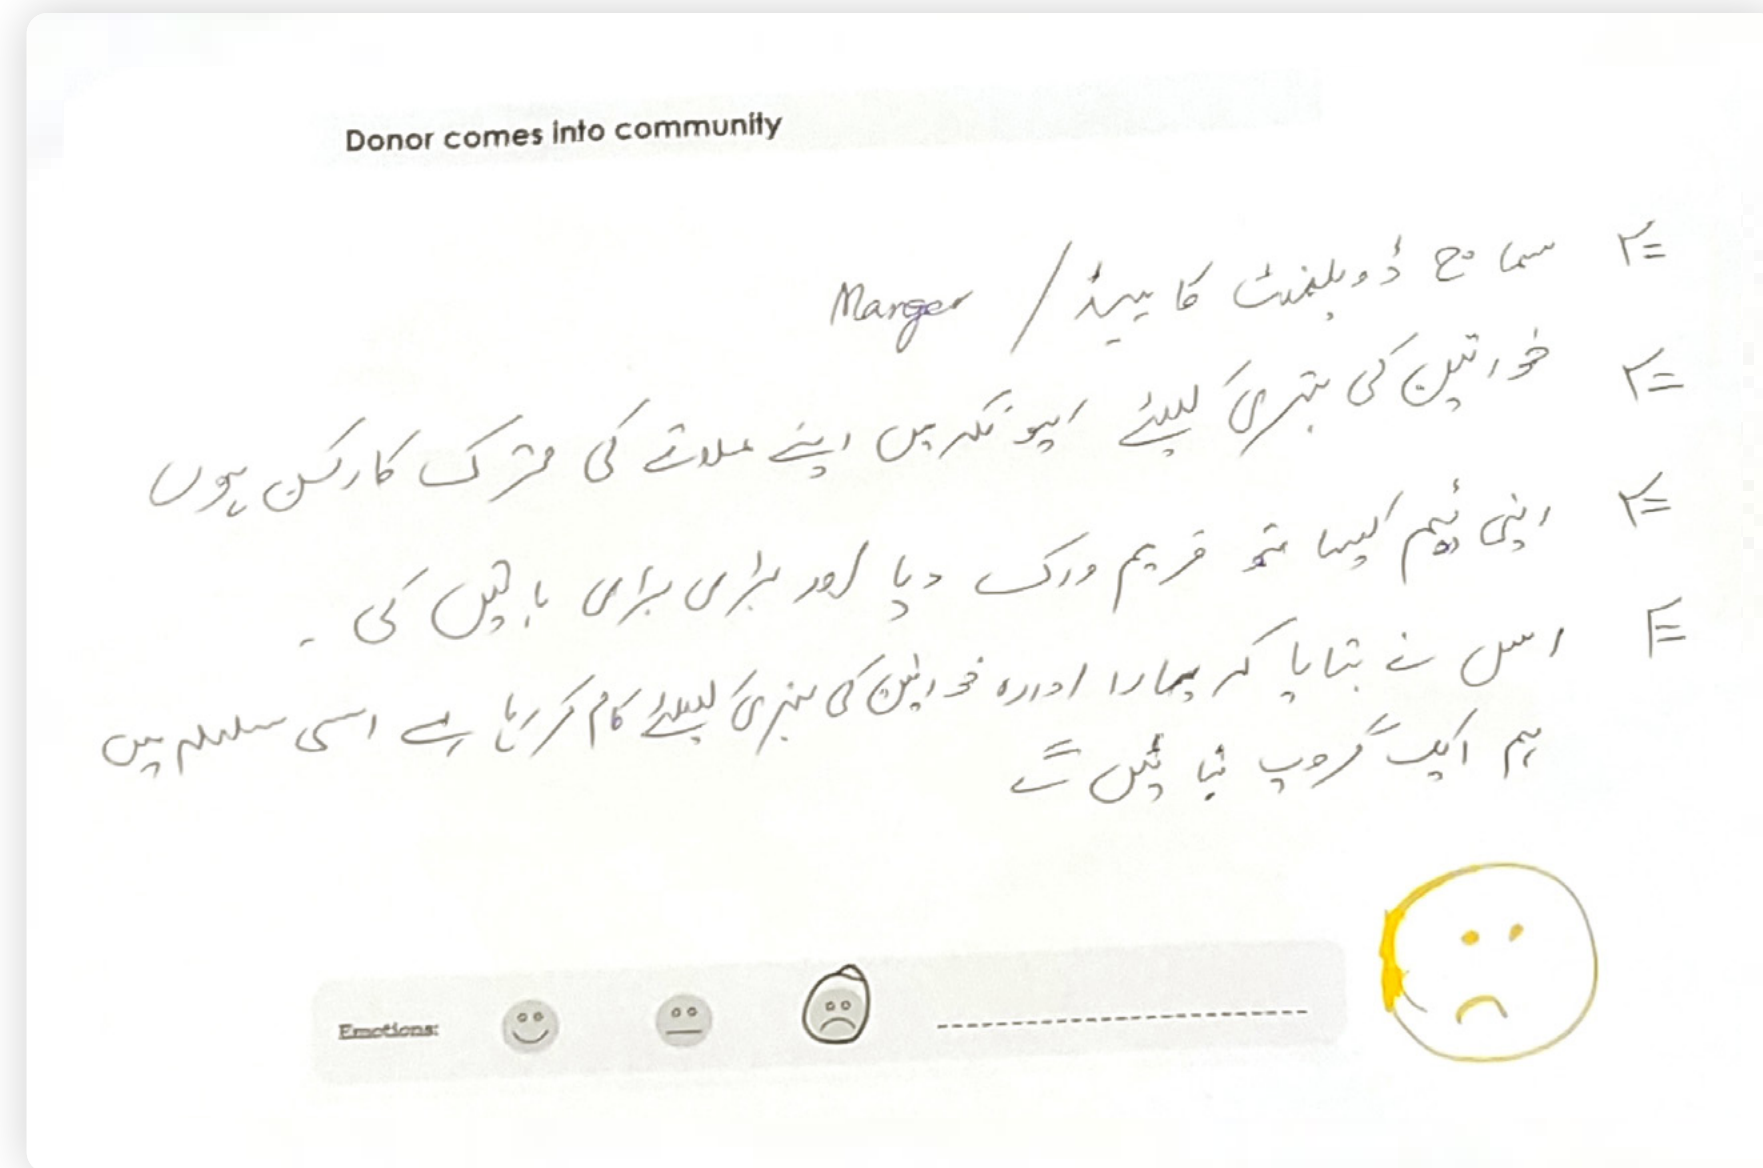 Donor comes into community
=۲ سماج ڈویلپمنٹ کا ہیڈ / Manger
=۲ خواتین کی بہتری کیلئے کیونکہ میں اپنے علاقے کی متحرک کارکن ہوں
=۲ اپنی ٹیم کیساتھ فریم ورک دیا اور بڑی بڑی باتیں کی ۔
اس نے بتایا کہ ہمارا ادارہ خواتین کی بہتری کیلئے کام کر رہا ہے اسی سلسلہ میں
ہم ایک گروپ بنائیں گے
Emotions: